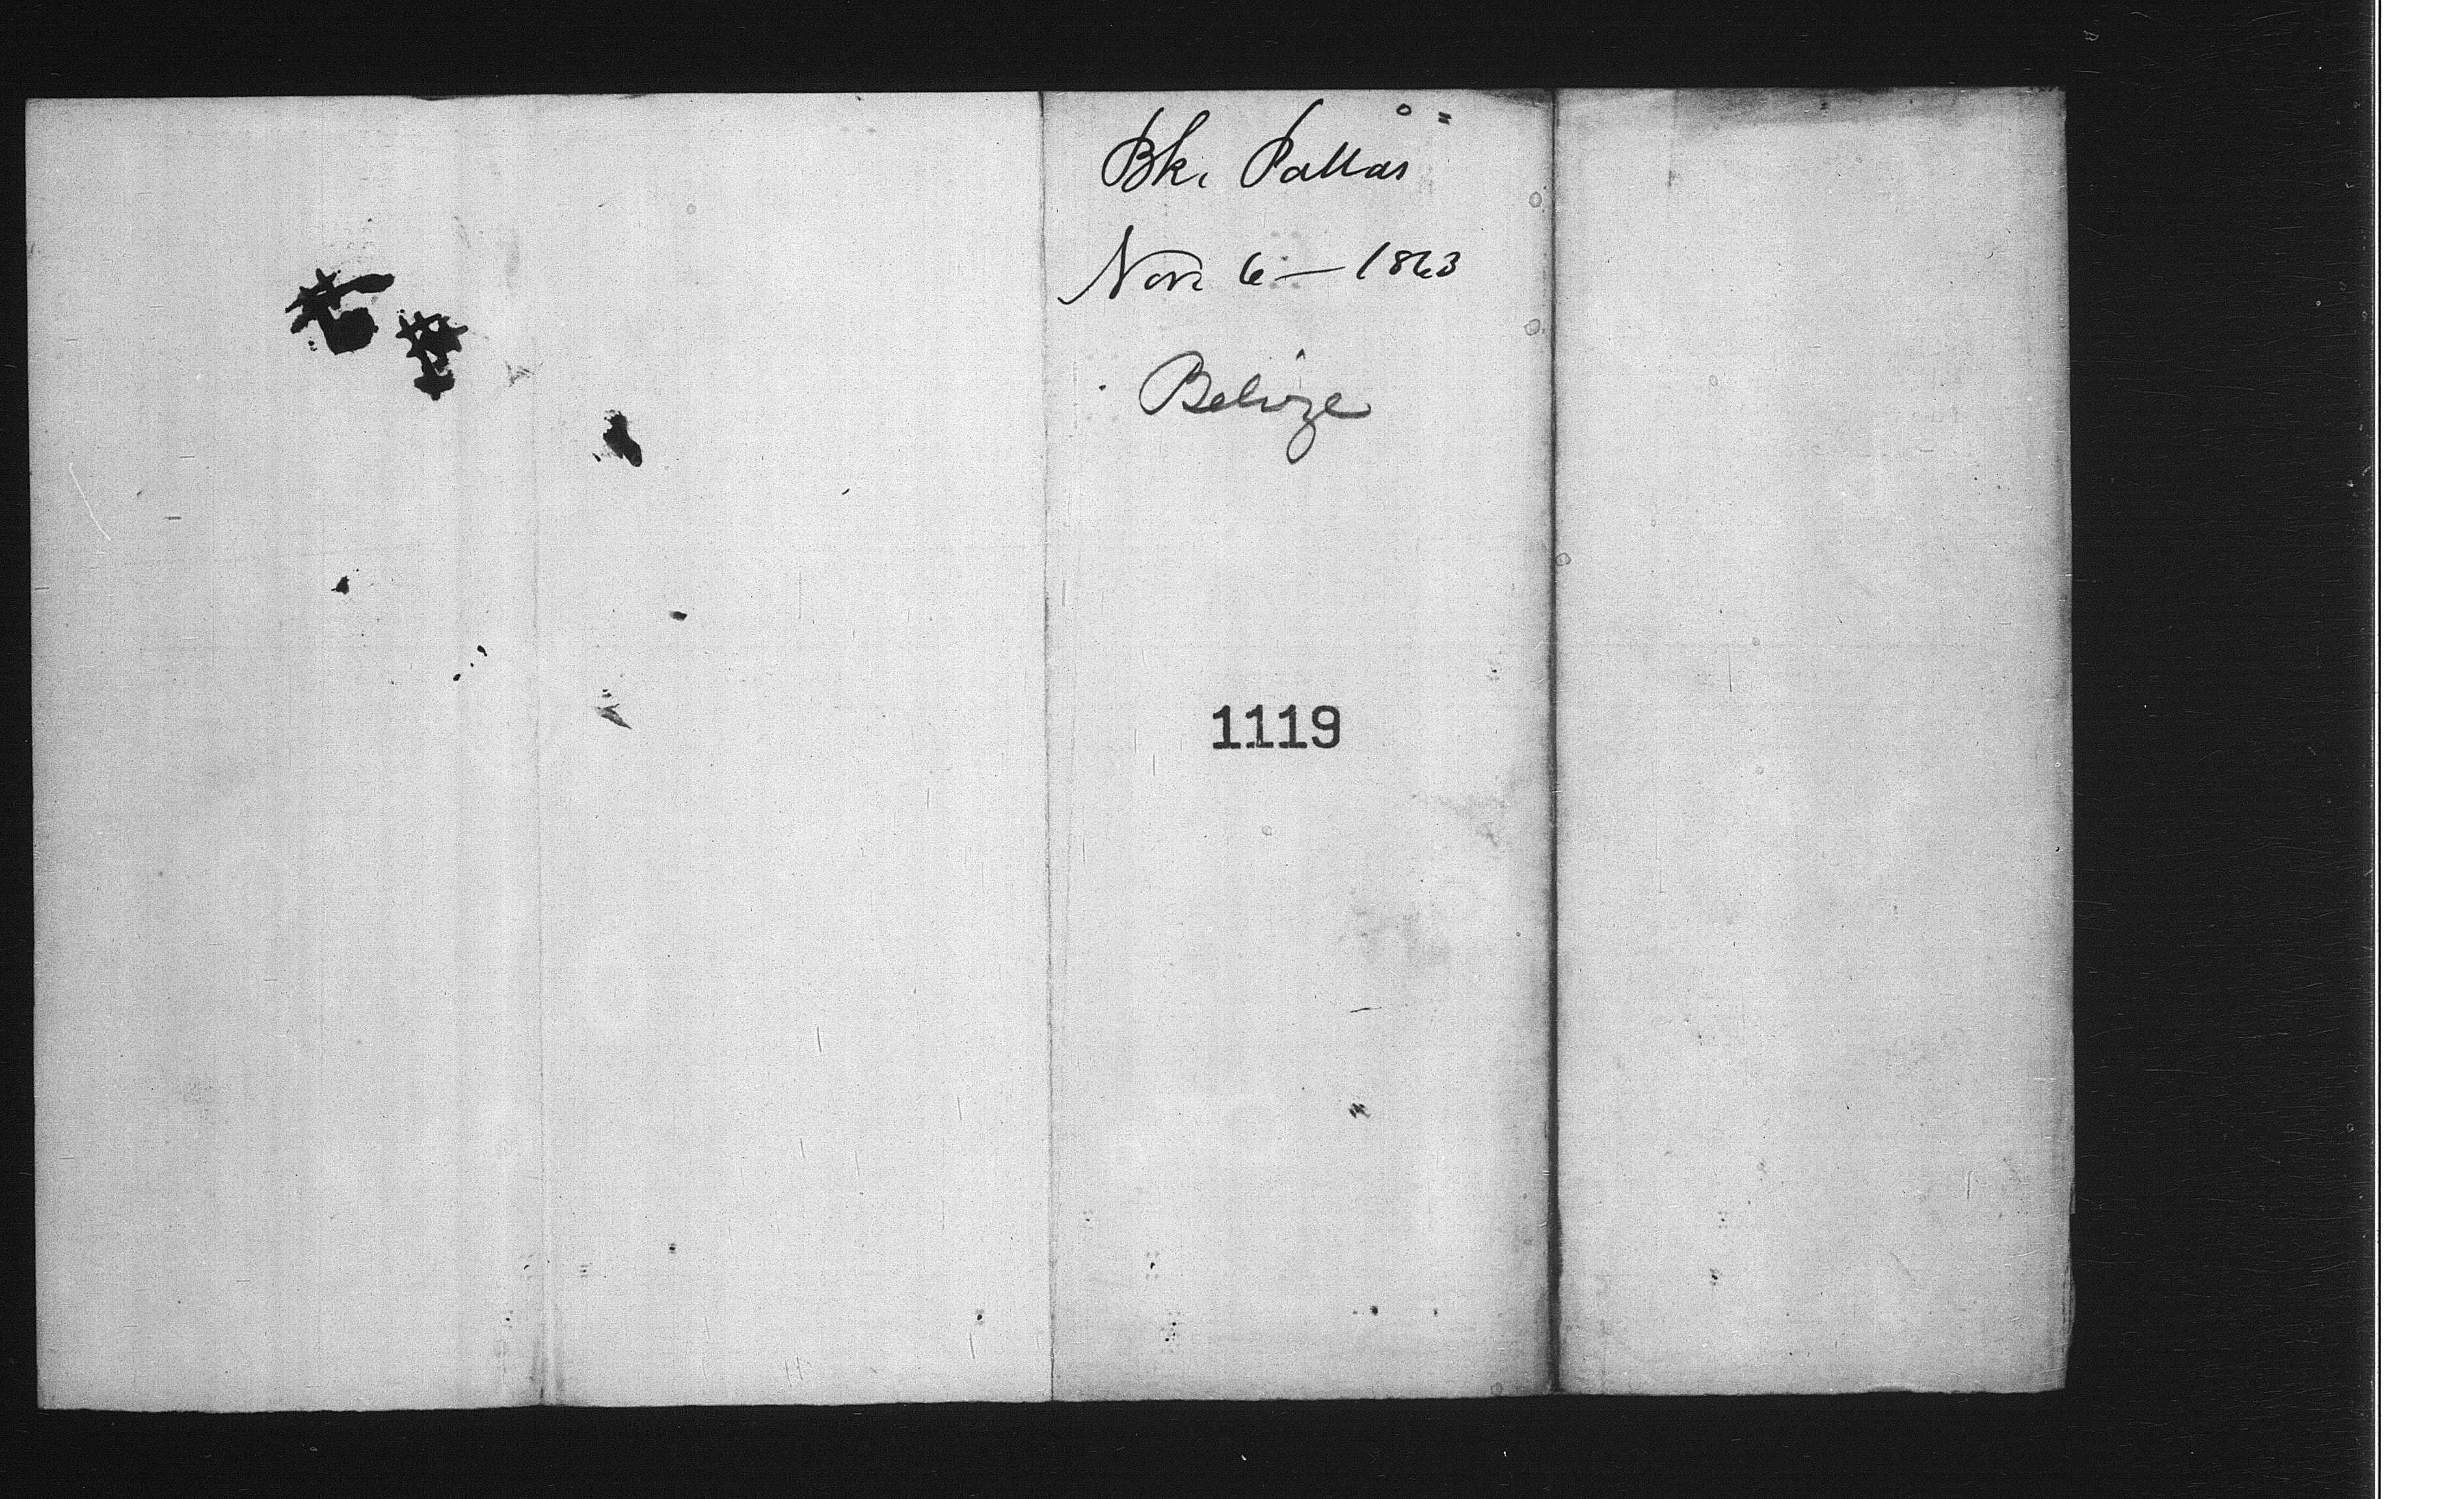 Bk. Pallas
Nov. 6 — 1863
Belize
1119